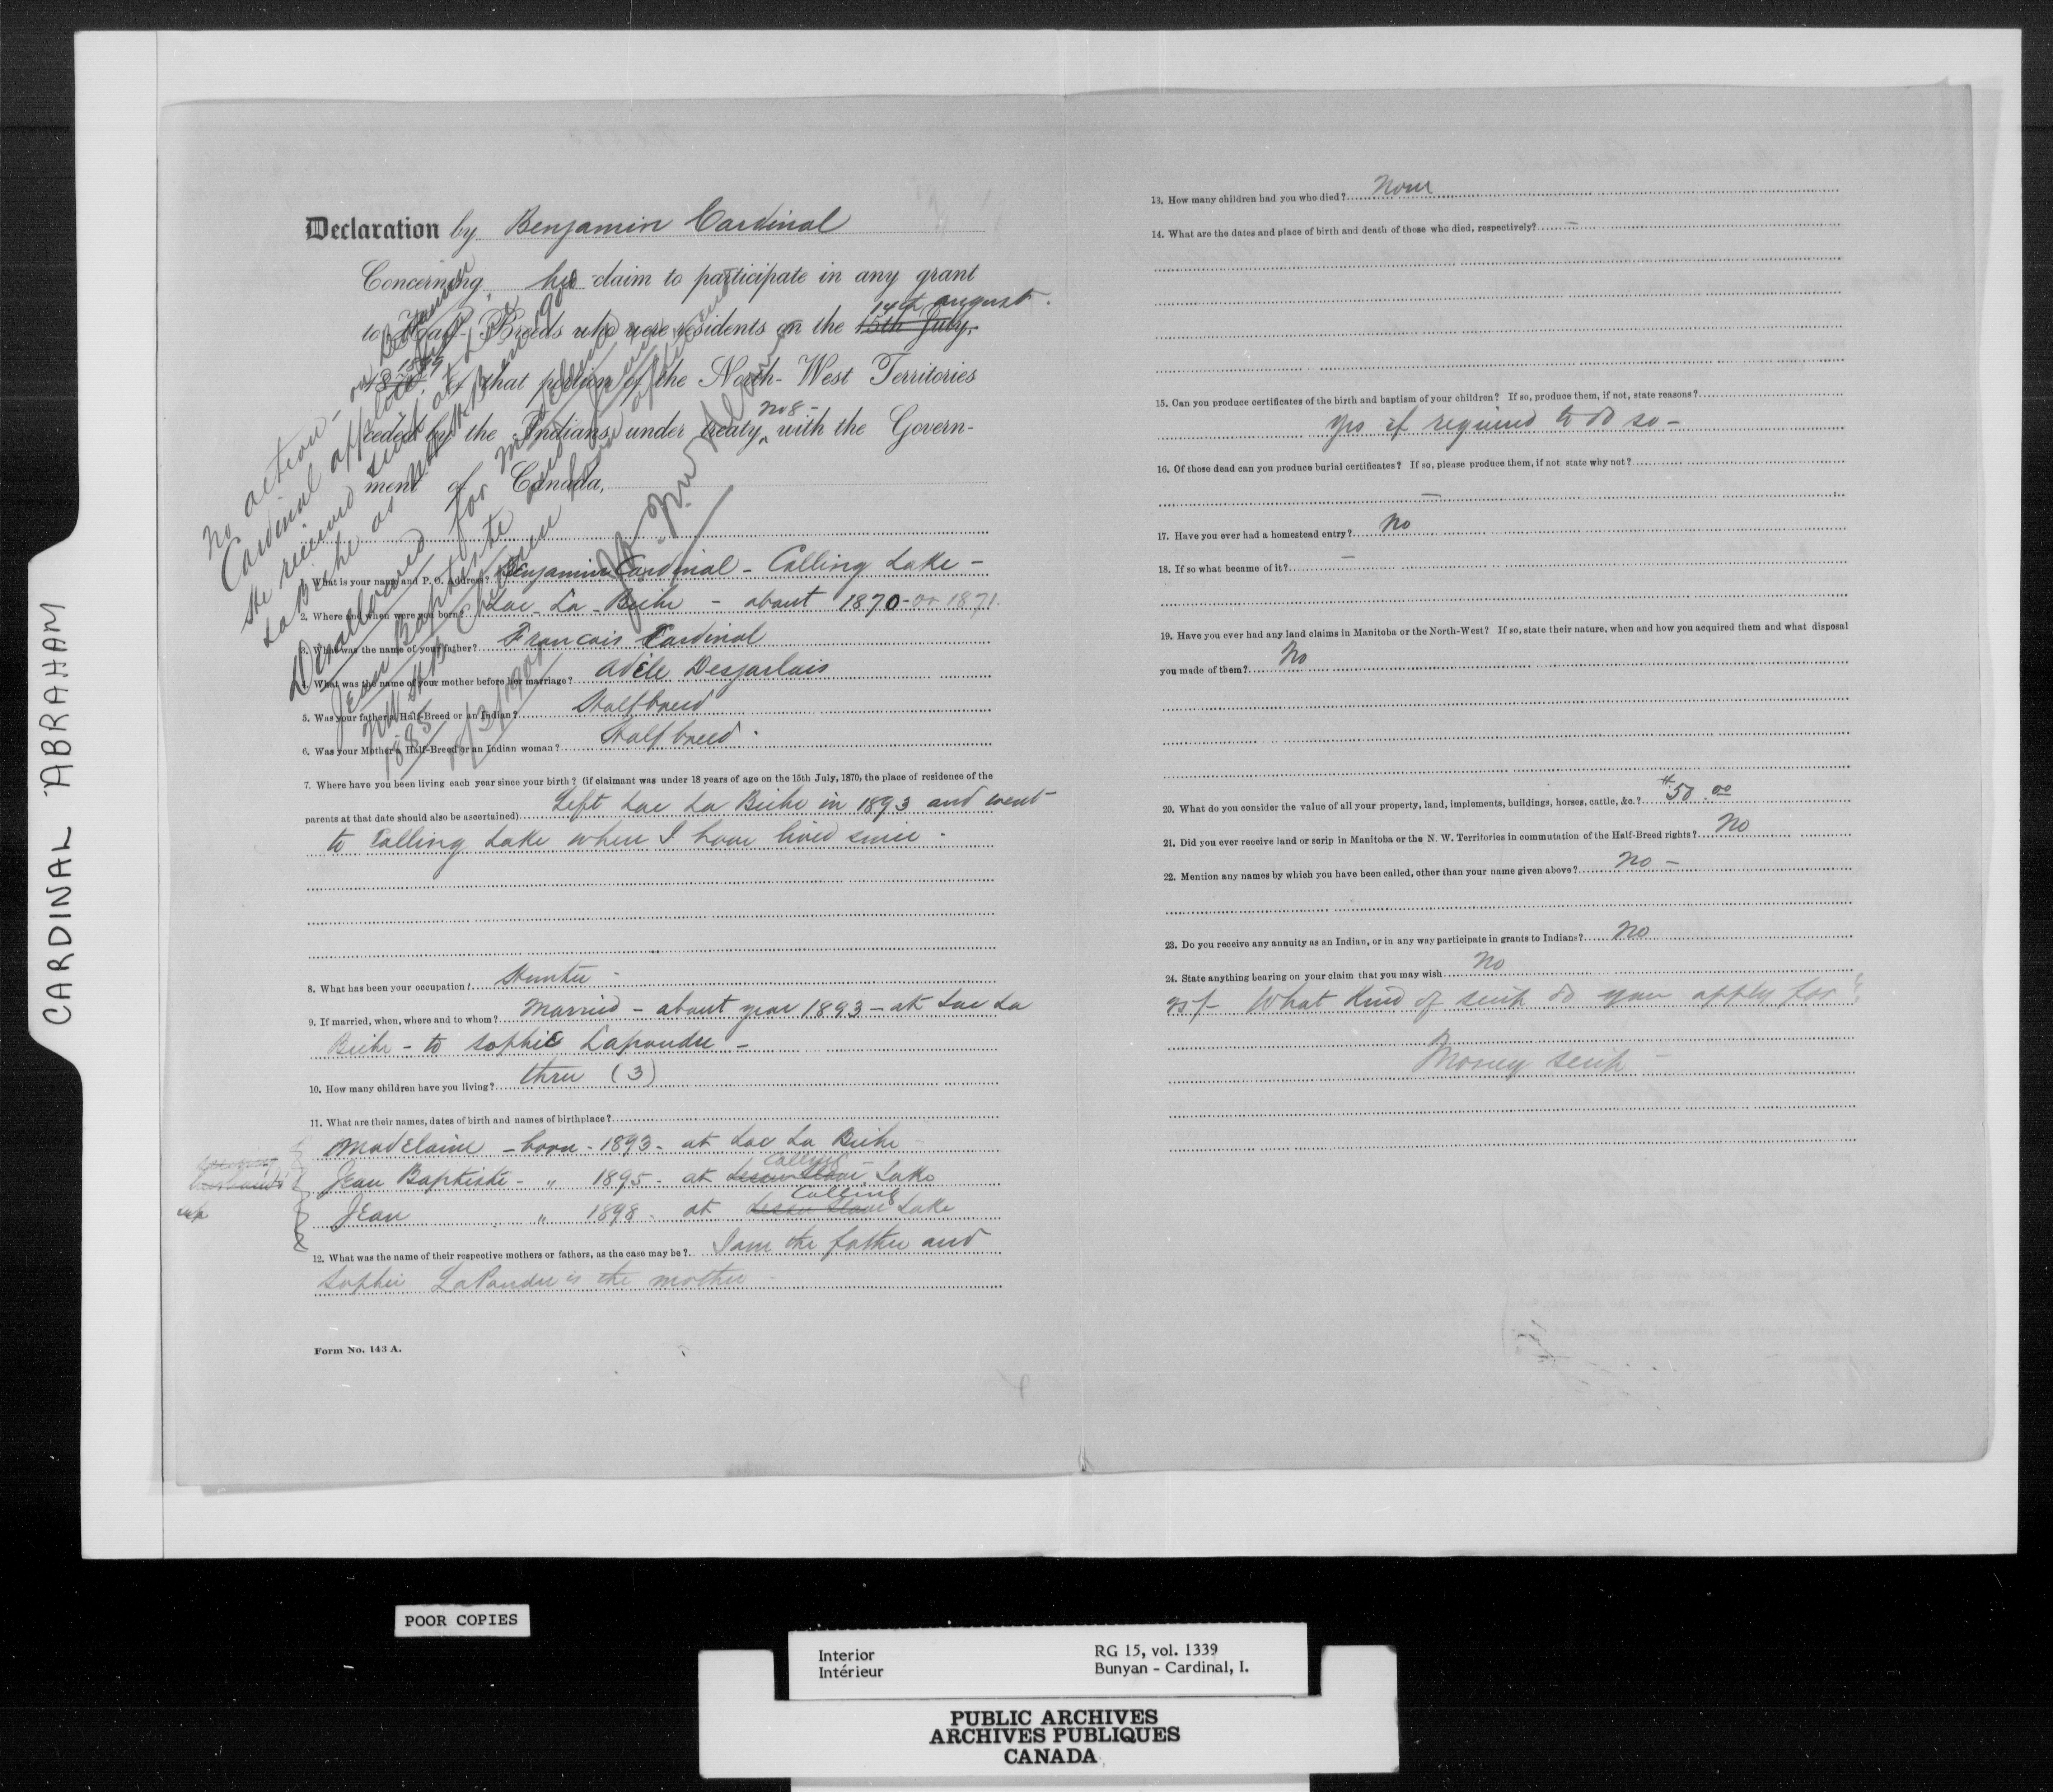 CARDINAL ABRAHAM
Declaration by Benjamin Cardinal
Concerning his claim to participate in any grant
to Half-Breeds who were residents on the 15th July, 14th august
1870, 1899 of that portion of the North-West Territories
ceded by the Indians under treaty no 8 - with the Govern-
ment of Canada,
No action -
Cardinal applied
He received scrip at Lac
La Biche as
Disallowed for
Jean Baptiste and Jean
children
1885
1. What is your name and P. O. Address? Benjamin Cardinal - Calling Lake -
2. Where and when were you born? Lac La Biche - about 1870 - or 1871.
3. What was the name of your father? Francois Cardinal
4. What was the name of your mother before her marriage? Adèle Desjarlais
5. Was your father a Half-Breed or an Indian? Halfbreed
6. Was your Mother a Half-Breed or an Indian woman? Half breed.
7. Where have you been living each year since your birth? (if claimant was under 18 years of age on the 15th July, 1870, the place of residence of the
parents at that date should also be ascertained) Left Lac La Biche in 1893 and went
to Calling Lake where I have lived since.
8. What has been your occupation? Hunter -
9. If married, when, where and to whom? Married - about year 1893 - at Lac La
Biche - to Sophie Lapoudre -
10. How many children have you living? three (3)
11. What are their names, dates of birth and names of birthplace?
Madelaine - born - 1893 - at Lac La Biche -
Jean Baptiste - " 1895 - at Lesser Slave Calling Lake
Jean " 1898 - at Lesser Slave Calling Lake
12. What was the name of their respective mothers or fathers, as the case may be? I am the father and
Sophie LaPoudre is the mother -
Form No. 143 A.
13. How many children had you who died? None
14. What are the dates and place of birth and death of those who died, respectively? -
15. Can you produce certificates of the birth and baptism of your children? If so, produce them, if not, state reasons?
Yes if required to do so -
16. Of those dead can you produce burial certificates? If so, please produce them, if not state why not?
-
17. Have you ever had a homestead entry? No
18. If so what became of it? -
19. Have you ever had any land claims in Manitoba or the North-West? If so, state their nature, when and how you acquired them and what disposal
you made of them? No
20. What do you consider the value of all your property, land, implements, buildings, horses, cattle, &c.? $50.00
21. Did you ever receive land or scrip in Manitoba or the N. W. Territories in commutation of the Half-Breed rights? No
22. Mention any names by which you have been called, other than your name given above? No -
23. Do you receive any annuity as an Indian, or in any way participate in grants to Indians? No
24. State anything bearing on your claim that you may wish No
25/- What kind of scrip do you apply for?
Money scrip -
POOR COPIES
Interior
Intérieur
RG 15, vol. 1339
Bunyan - Cardinal, I.
PUBLIC ARCHIVES
ARCHIVES PUBLIQUES
CANADA